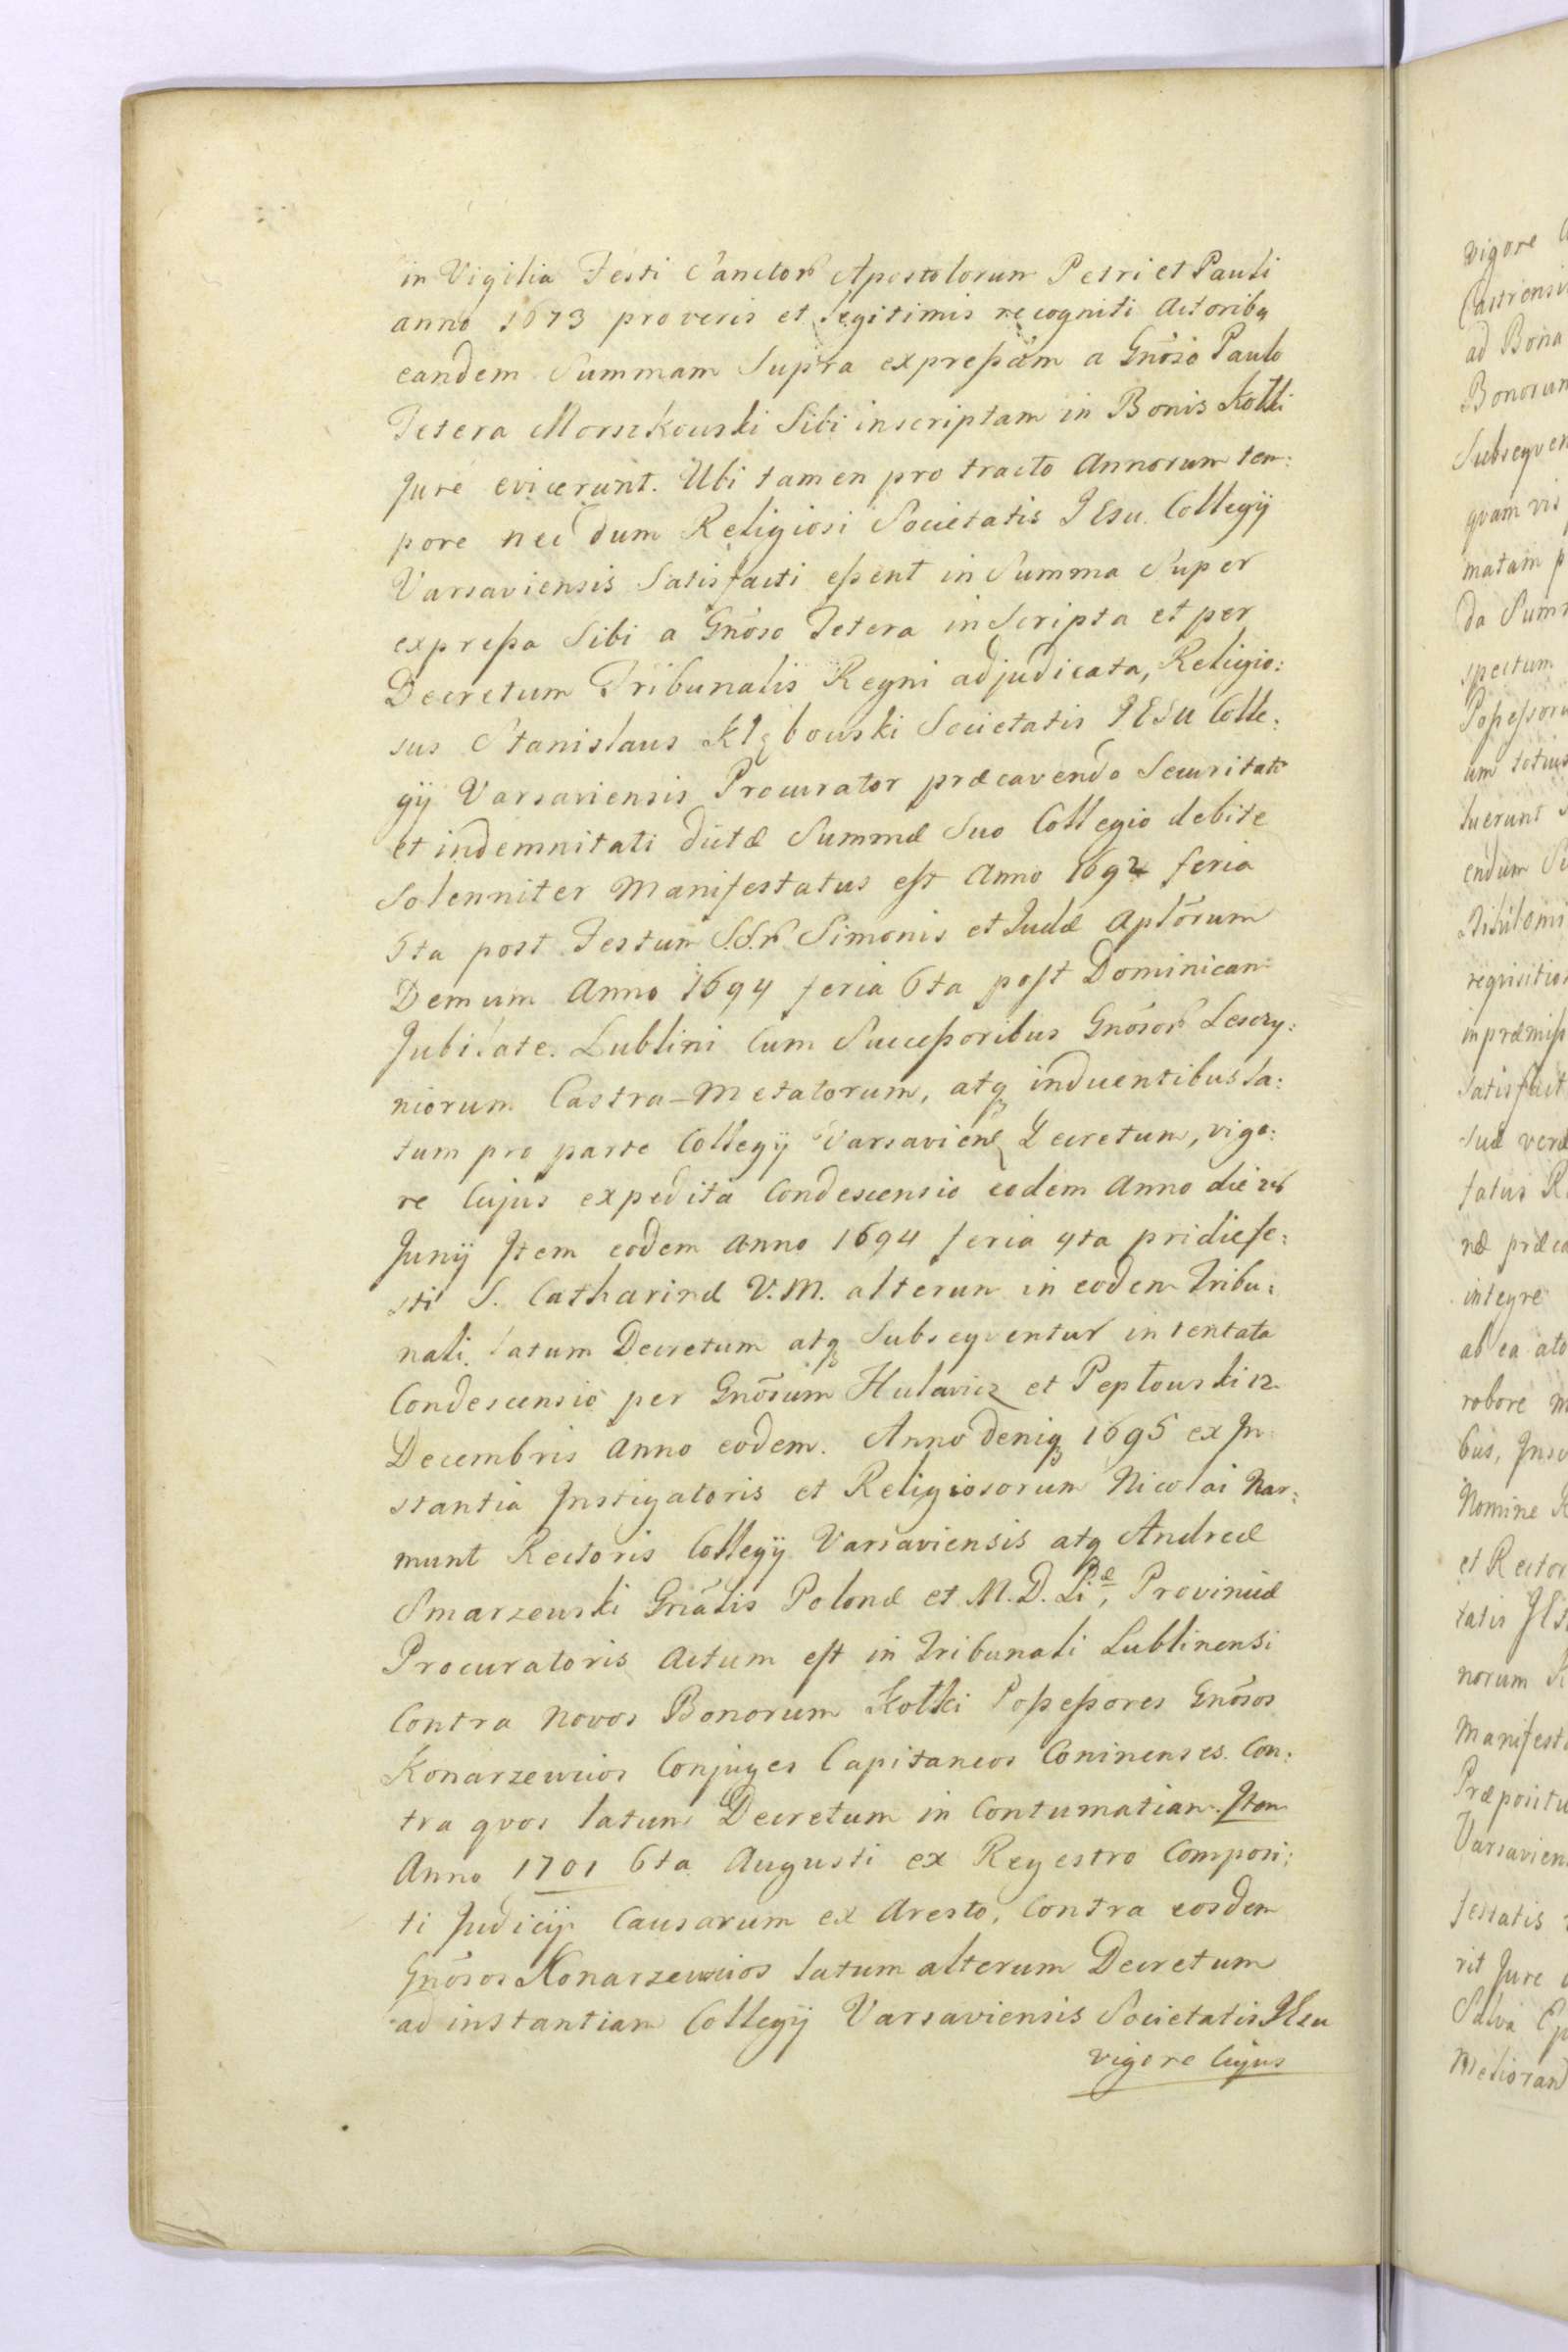 in Vigilia Festi Sanctor Apostolorum Petri et Pauli
anno 1673 pro veris et legitimis recogniti Actoribq
eandem Summam Supra expreßam a Gnoso Paulo
Tetera Morszkouski Sibi inscriptam in Bonis Kotki
Jure evicerunt. Ubi tamen pro tracto Annorum tem:
pore nec dum Religiosi Societatis JEsu Collegÿ
Varsaviensis Satisfacti eßent in Summa Super
expreßa Sibi a Gnoso Tetera in Scripta et per
Decretum Tribunalis Regni adjudicata, Religio:
sus Stanislaus Klębouski Societatis JESU Colle:
gÿ Varsaviensis Procurator præcavendo Securitati
et indemnitati dictæ Summæ Suo Collegio debite
Solenniter Manifestatus est Anno 1692 feria
6ta post Festum S.S.r. Simonis et Judæ Aplōrum
Demum Anno 1694 feria 6ta post Dominicam
Jubilate. Lublini Cum Succeßoribus Gnōsor Lesczy:
niorum Castra-Metatorum, atq inducentibus la:
tum pro parte Collegÿ Varsavień Decretum, vigo:
re Cujus expedita Condescensio eodem Anno die 26
Junÿ Item eodem Anno 1694 feria 4ta pridie fe:
sti S. Catharinæ V.M. alterum in eodem Tribu:
nali latum Decretum atq Subseqventur intentata
Condescensio per Gnōsum Hulavicz et Peptouski 12
Decembris Anno eodem. Anno deniq 1695 ex In
stantia Instigatoris et Religiosorum Nicolai Nar:
munt Rectoris Collegÿ Varsaviensis atq Andreæ
Smarzeuski Gnālis Polonæ et M.D. Liæ, Provinciæ
Procuratoris Actum est in Tribunali Lublinensi
Contra Novos Bonorum Kotki Poßeßores Gnōsos
Konarzewcios Conjuges Capitaneos Coninenses. Con:
tra qvos latum Decretum in Contumatiam. Item
Anno 1701 6ta Augusti ex Regestro Composi:
ti Judicÿ Causarum ex Aresto, Contra eosdem
Gnōsos Konarzewcios latum alterum Decretum
ad instantiam Collegÿ Varsaviensis Societatis JEsu
vigore Cujus
vigore
ad Bona
Bonorum
Subseqven
qvam vis
matam
da Sum
spectum
Poßeßoru
um totius
tuerunt
endum
reqvisition
in præmiß
Satisfact
Suæ
integre
ab ea
robore
bus,
Nomine
et Rector
tatis
norum
Manifest
Præpositu
Varsavien
festatis
rit Jure
Salva
Meliorand